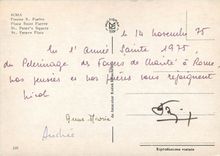 ROMA
Piazza S. Pietro
Place Saint Pierre
St. Peter's Square
St. Peters Platz
le 14 novembre 75
En l'année Sainte 1975,
du Pèlerinage des Foyers de Charité à Rome
nos pensées et nos prières vous rejoignent
Anne Marie
Andrée
Riproduzione vietata